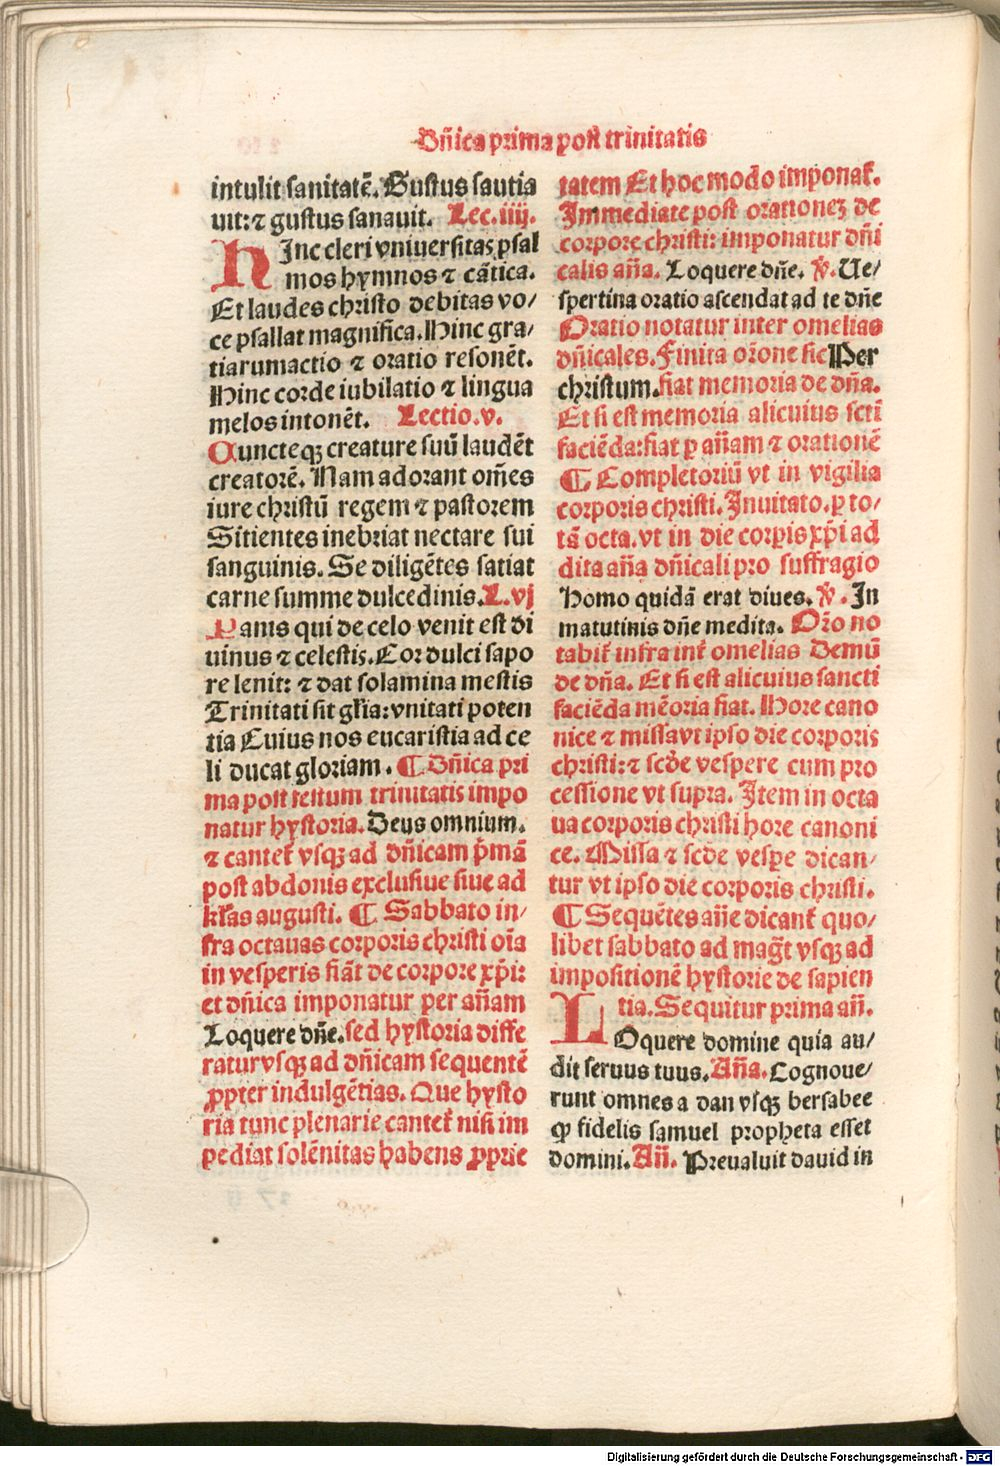 Dñica prima post trinitatis
intulit sanitatē. Gustus sautia
uit: ⁊ gustus sanauit. Lec. iiij.
HInc cleri vniuersitas psal
mos hymnos ⁊ cātica.
Et laudes christo debitas vo/
ce psallat magnifica. Hinc gra/
tiarumactio ⁊ oratio resonēt.
Hinc corde iubilatio ⁊ lingua
melos intonēt. Lectio. v.
Cuncteqꝫ creature suū laudēt
creatorē. Nam adorant om̄es
iure christū regem ⁊ pastorem
Sitientes inebriat nectare sui
sanguinis. Se diligētes satiat
carne summe dulcedinis. L. vj
Panis qui de celo venit est di
uinus ⁊ celestis. Cor dulci sapo
re lenit: ⁊ dat solamina mestis
Trinitati sit gl̄ia: vnitati poten
tia Cuius nos eucaristia ad ce
li ducat gloriam. ¶ Dñica pri
ma post festum trinitatis impo
natur hystoria. Deus omnium.
⁊ cantet̄ vsqꝫ ad dñicam p̄mā
post abdonis exclusiue siue ad
kl̄as augusti. ¶ Sabbato in/
fra octauas corporis christi oīa
in vesperis fiāt de corpore xp̄i:
et dñica imponatur per añam
Loquere dñe. sed hystoria diffe
ratur vsqꝫ ad dñicam sequentē
ꝓpter indulgētias. Que hysto
ria tunc plenarie cantet̄ nisi im
pediat solēnitas habens ꝓprie
tatem Et hoc modo imponat̄.
Immediate post orationeꝫ de
corpore christi: imponatur dñi
calis aña. Loquere dñe. ℣. Ue/
spertina oratio ascendat ad te dñe
Oratio notatur inter omelias
dñicales. Finita or̄one sic Per
christum. fiat memoria de dña.
Et si est memoria alicuius scti
faciēda: fiat ꝑ añam ⁊ orationē
¶ Completoriū vt in vigilia
corporis christi. Inuitato. ꝑ to/
tā octa. vt in die corꝑis xp̄i ad
dita aña dñicali pro suffragio
Homo quidā erat diues. ℣. In
matutinis dñe medita. Or̄o no
tabit̄ infra int̄ omelias Demū
de dña. Et si est alicuius sancti
faciēda mēoria fiat. Hore cano
nice ⁊ missa vt ipso die corporis
christi: ⁊ scd̄e vespere cum pro
cessione vt supra. Item in octa
ua corporis christi hore canoni
ce. Missa ⁊ scd̄e vesꝑe dican/
tur vt ipso die corporis christi.
¶ Sequētes añe dicant̄ quo/
libet sabbato ad maḡt vsqꝫ ad
impositionē hystorie de sapien
tia. Sequitur prima añ.
LOquere domine quia au/
dit seruus tuus. Aña. Cognoue/
runt omnes a dan vsqꝫ bersabee
ꝙ fidelis samuel propheta esset
domini. Añ. Preualuit dauid in
Digitalisierung gefördert durch die Deutsche Forschungsgemeinschaft - DFG